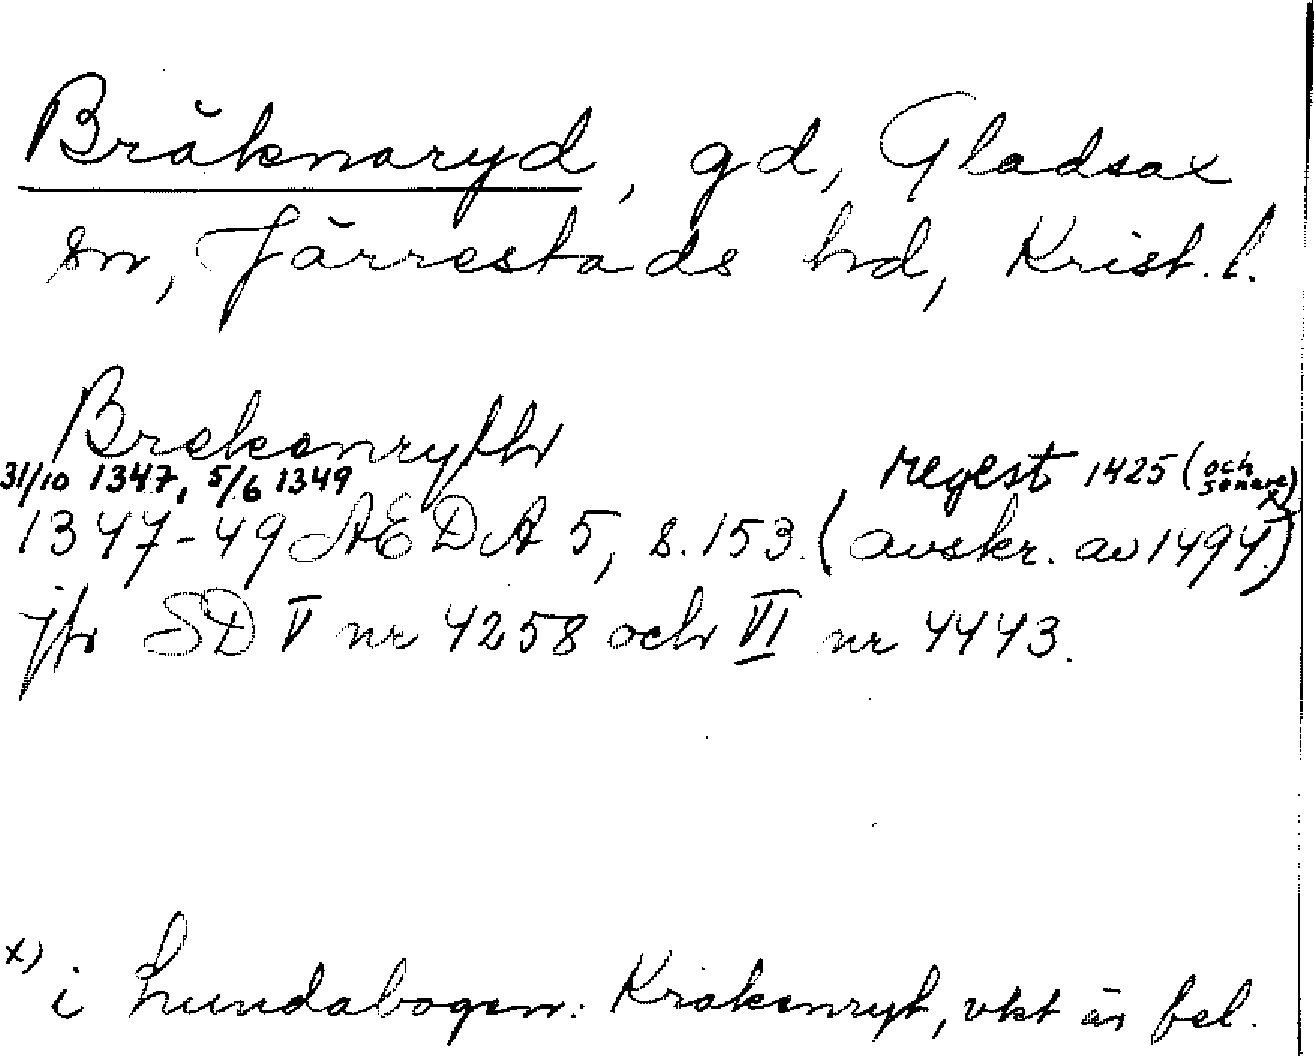 Bräknaryd, gd, Gladsax
sn, Järrestads hd, Krist. l.
Brekenrythr
31/10 1347, 5/6 1349 regest 1425 (och senare) x)
1347-49 ÆDA 5, s. 153. (avskr. av 1494.)
jfr SD V nr 4258 och VI nr 4443.
x) i Lundabogen: Krakenryt, vkt är fel.